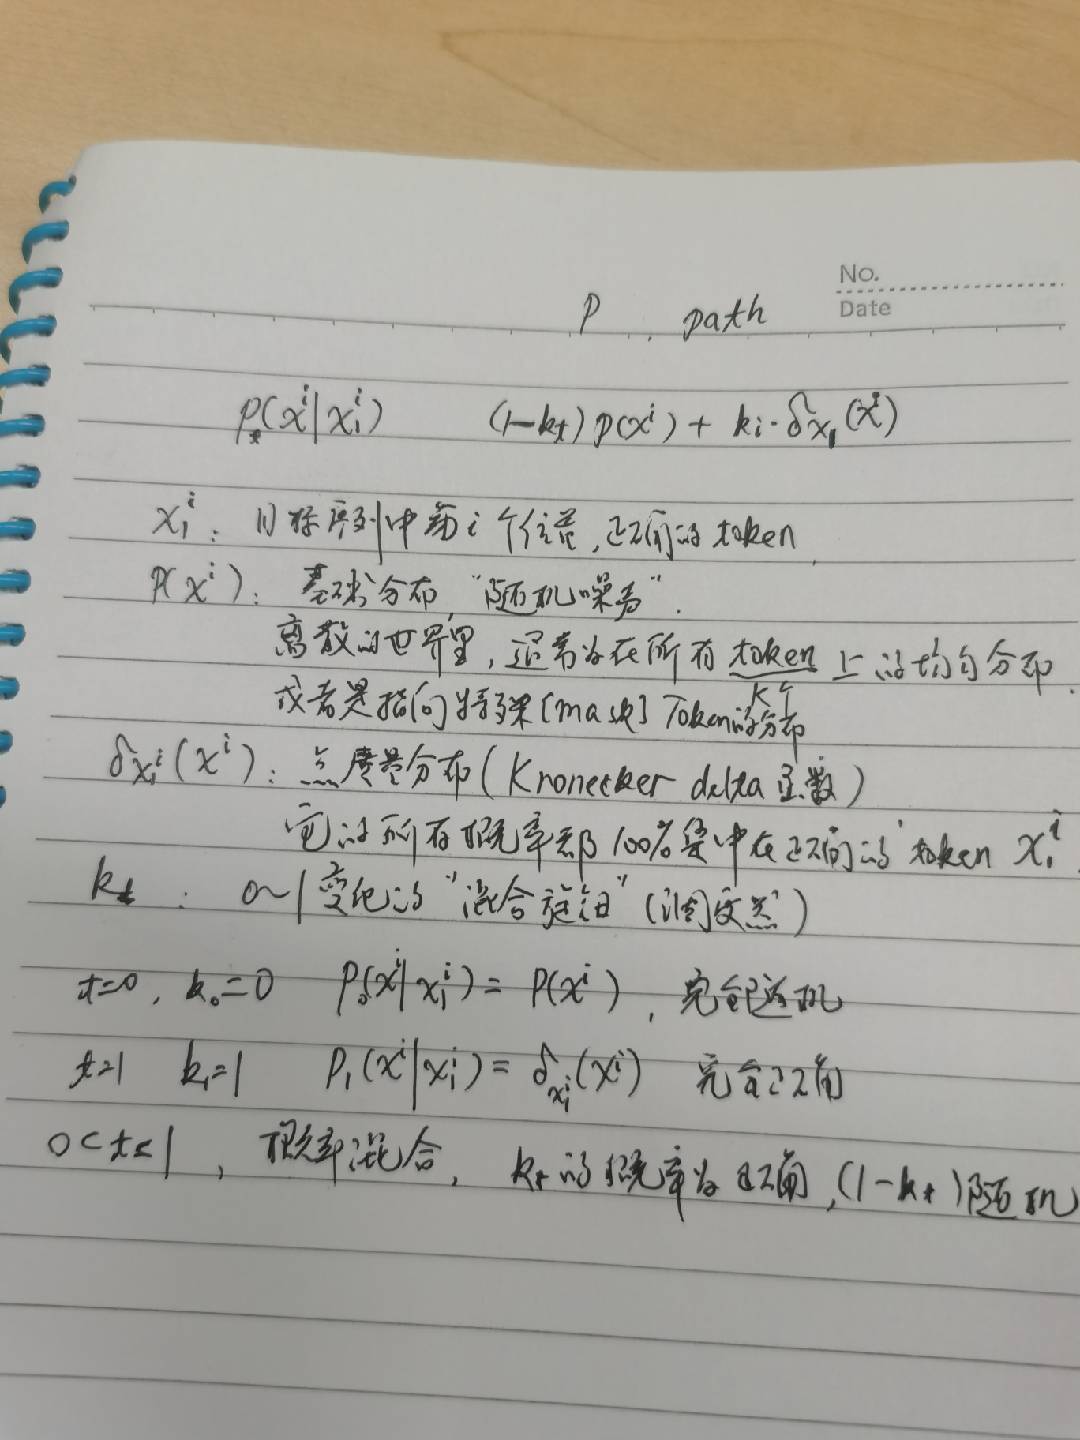 No.
Date
P , path
Pₜ(xⁱ|x₁ⁱ) (1-kₜ)p(xⁱ) + kᵢ·δx₁(xⁱ)
x₁ⁱ: 目标序列中第i个位置,正确的token
P(xⁱ): 基础分布,"随机噪声".
离散的世界里,通常为在所有token上的均匀分布.
K个
或者是指向特殊[mask] Token的分布
δx₁ⁱ(xⁱ): 点质量分布(Kronecker delta函数)
它的所有概率都100%集中在正确的token x₁ⁱ.
kₜ : 0~1变化的"混合旋钮"(调度器)
t=0, k₀=0 P₀(xⁱ|x₁ⁱ)= P(xⁱ), 完全随机
t=1 k₁=1 P₁(xⁱ|x₁ⁱ)= δx₁ⁱ(xⁱ) 完全正确
0<t<1, 概率混合, kₜ的概率为正确,(1-kₜ)随机